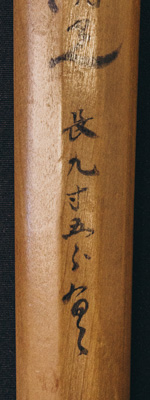 長九寸五分有之